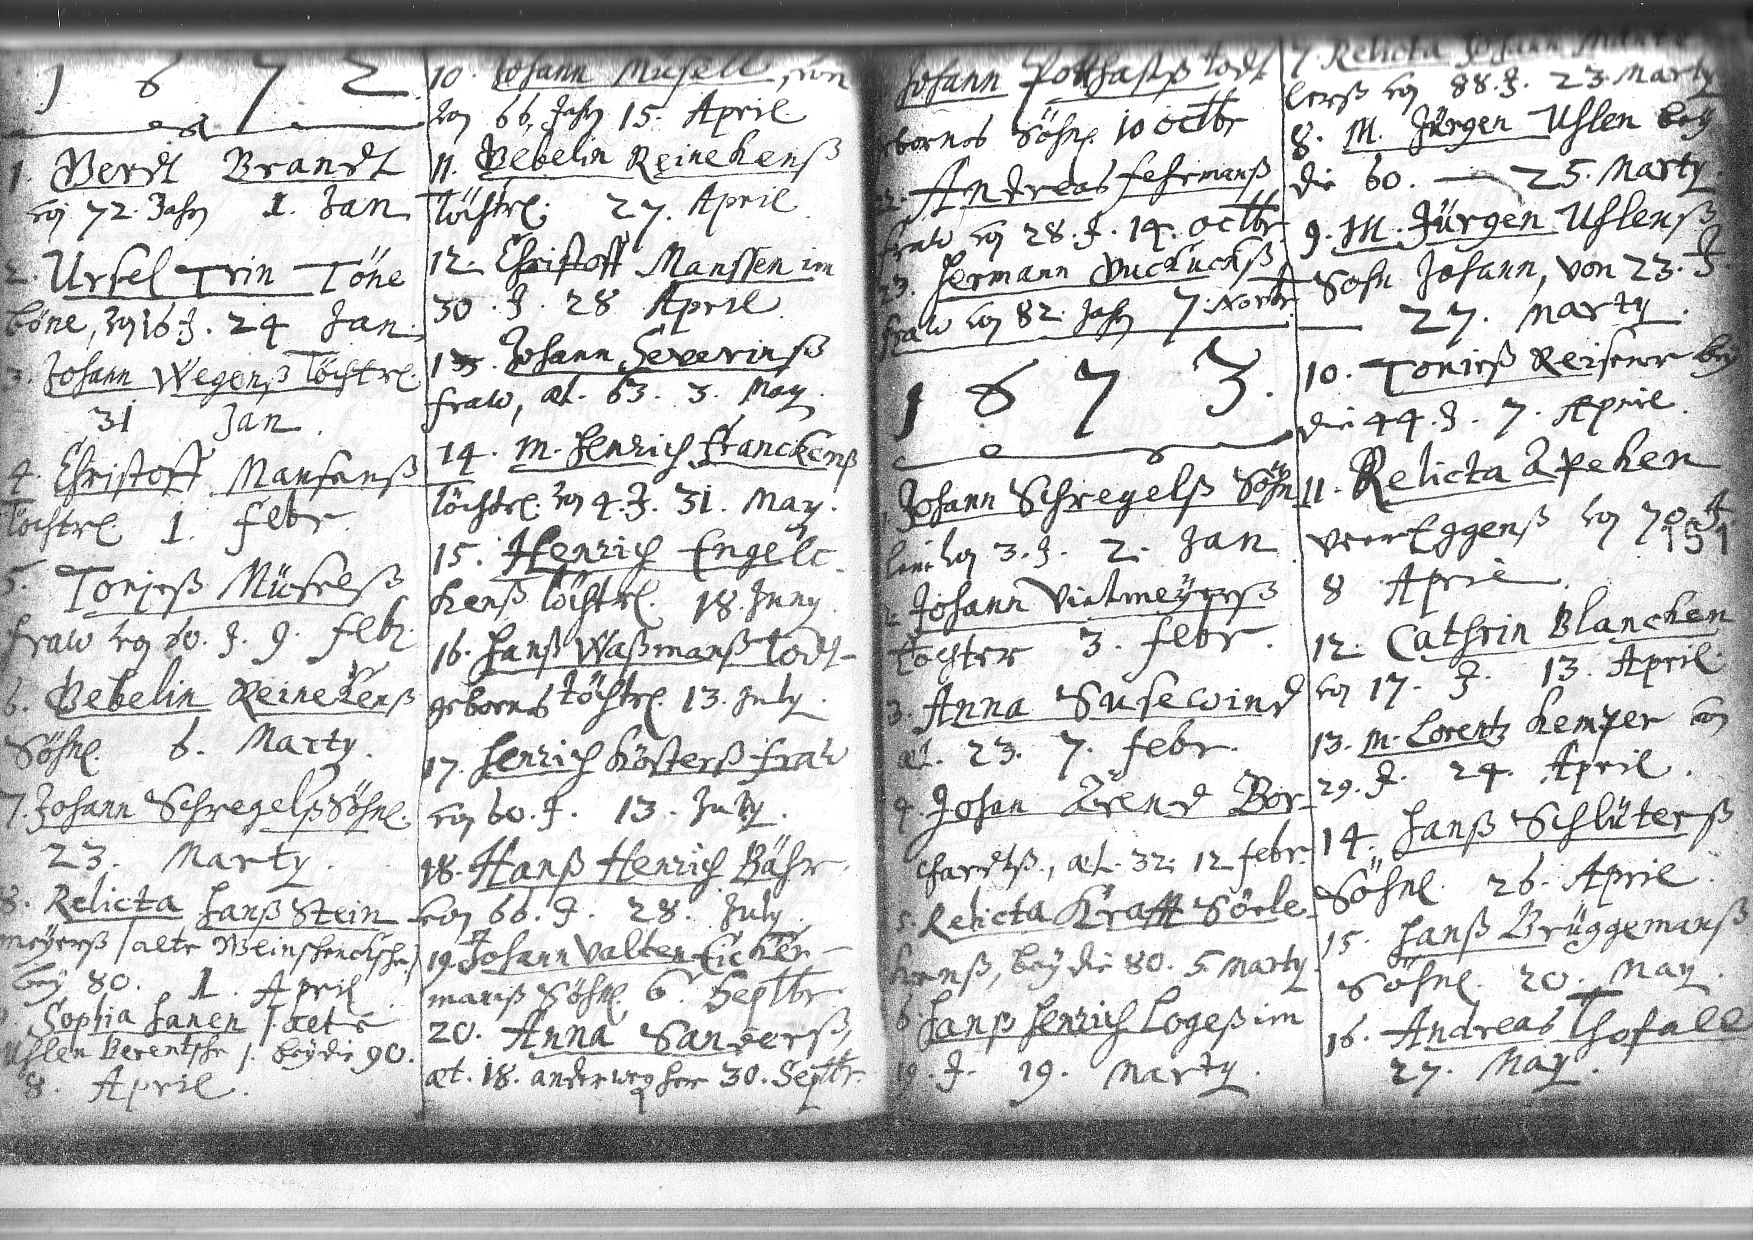 1 6 7 2
1. Berdt Brandt
von 72. Jahr 1. Jan
2. Ursel Trin Töne
böne, von 16 J. 24 Jan.
3. Johann Wegenß Töchterl.
31 Jan.
4. Christoff Mansenß
Töchterl. 1. Febr.
5. Tonieß Müselß
Fraw von 60. J. 9. Febr.
6. Bebelin Reinekenß
Söhnl. 6. Marty.
7. Johann Schregelß Söhnl.
23. Marty.
8. Relicta Hanß Stein
meyerß / alte Weinschencksche /
bey 80. 1. April.
Sophia Hanen / alte
Uhlen Berentsche /. bey die 90.
8. April.
10. Johann Müsell, von
von 66 Jahr 15. April
11. Bebelin Reinekenß
Töchterl. 27. April.
12. Christoff Manssen im
30. J. 28 April.
13. Johann Severinß
Fraw, æt. 63. 3. May.
14. M. Henrich Franckenß
Töchterl. von 4. J. 31. May.
15. Henrich Engel
kenß Töchterl. 18. Juny.
16. Hanß Waßmanß Todt-
gebornes Töchterl. 13. July.
17. Henrich Kösterß Fraw
von 60. J. 13. July.
18. Hanß Henrich Bähr
von 66. J. 28. July.
19. Johann Valten Eicker-
manß Söhnl. 6. Septbr
20. Anna Sanderß,
æt. 18. anderweg her 30. Septbr.
Johann Potthastß todt
gebornes Söhnl. 10 Octbr
22. Andreas Fehrmanß
Fraw von 28. J. 14. Octbr.
23. Hermann Kuckuckß
Fraw von 82. Jahr 7. Novbr.
1 6 7 3.
1. Johann Schregelß Söhn
lein von 3. J. 2. Jan
2. Johann Vietmeyerß
Tochter 3. Febr.
3. Anna Susewind
æt. 23. 7. Febr.
4. Johan Arend Bor-
chardtß, æt. 32. 12 Febr.
5. Relicta Krafft Söele-
kenß, bey die 80. 5 Marty.
6. Hanß Henrich Logeß im
19. J. 19. Marty.
7. Relicta Johann
lerß von 88. J. 23. Marty
8. M. Jürgen Uhlen bey
die 60. — 25. Marty.
9. M. Jürgen Uhlenß
Sohn Johann, von 23. J.
— 27. Marty.
10. Tonieß Reisener bey
die 44. J. 7. April.
11. Relicta Apeken
von Eggenß von 70. J.
151
8 April.
12. Cathrin Blancken
von 17. J. 13. April.
13. M. Lorentz Kemper von
29. J. 24. April.
14. Hanß Schlüterß
Söhnl. 26. April.
15. Hanß Brüggemanß
Söhnl. 20. May.
16. Andreas Thofall
27. May.